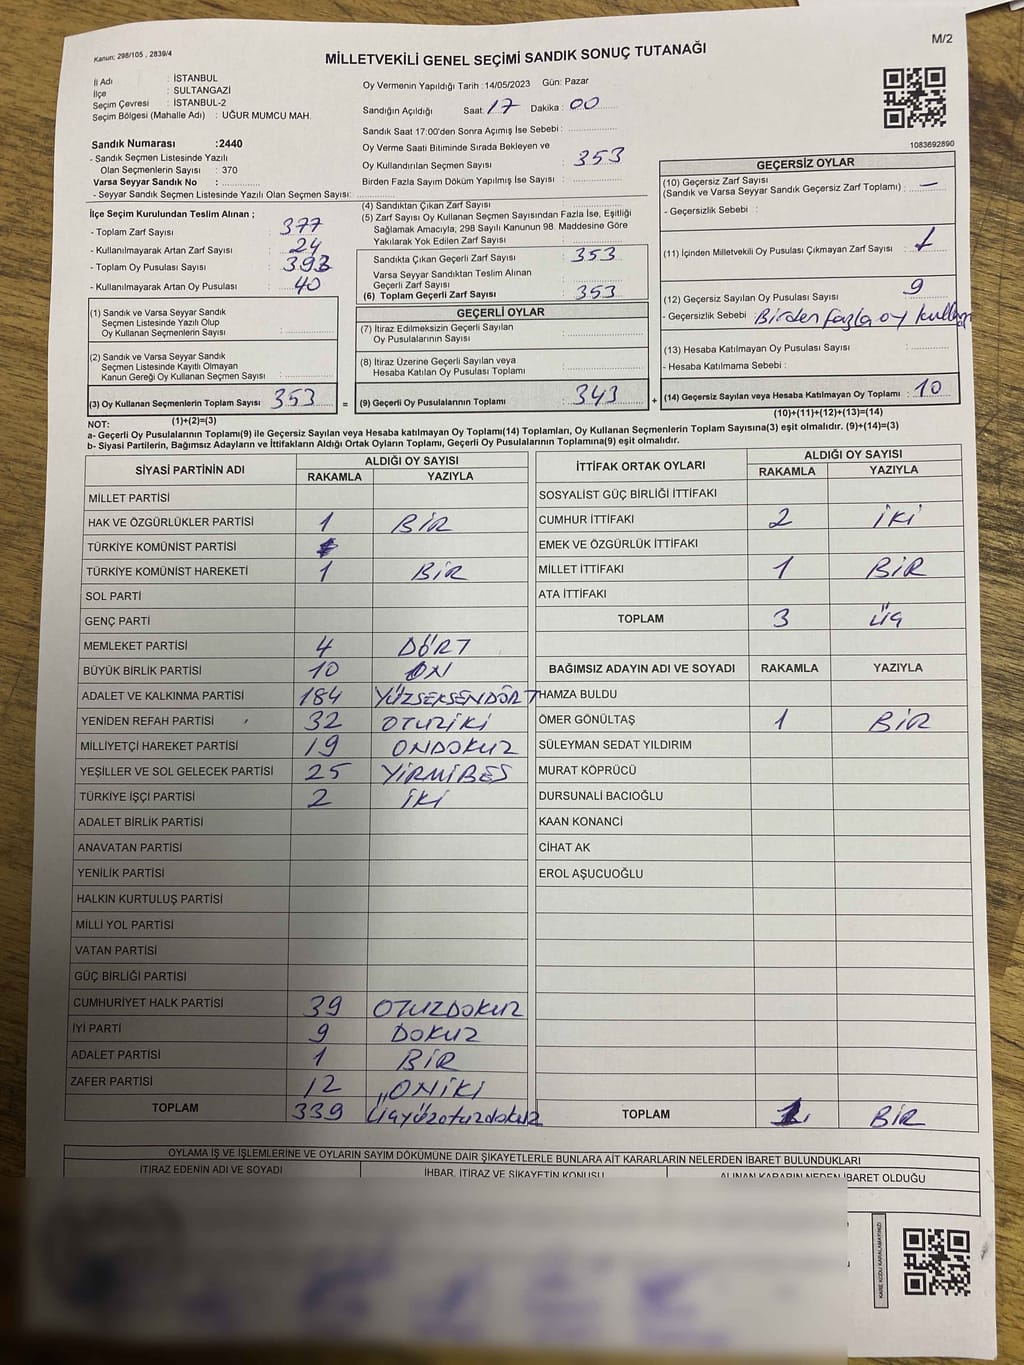 Kanun; 298/105 , 2839/4
M/2
MİLLETVEKİLİ GENEL SEÇİMİ SANDIK SONUÇ TUTANAĞI
İl Adı : İSTANBUL
İlçe : SULTANGAZİ
Seçim Çevresi : İSTANBUL-2
Seçim Bölgesi (Mahalle Adı) : UĞUR MUMCU MAH.
Oy Vermenin Yapıldığı Tarih :14/05/2023 Gün: Pazar
Sandığın Açıldığı Saat: 17 Dakika : 00
Sandık Saat 17:00'den Sonra Açımış İse Sebebi :
Oy Verme Saati Bitiminde Sırada Bekleyen ve
Oy Kullandırılan Seçmen Sayısı : 353
Birden Fazla Sayım Döküm Yapılmış İse Sayısı :
1083692890
Sandık Numarası :2440
- Sandık Seçmen Listesinde Yazılı
Olan Seçmenlerin Sayısı : 370
Varsa Seyyar Sandık No :
- Seyyar Sandık Seçmen Listesinde Yazılı Olan Seçmen Sayısı:
İlçe Seçim Kurulundan Teslim Alınan ;
- Toplam Zarf Sayısı : 377
- Kullanılmayarak Artan Zarf Sayısı : 24
- Toplam Oy Pusulası Sayısı : 393
- Kullanılmayarak Artan Oy Pusulası : 40
(1) Sandık ve Varsa Seyyar Sandık
Seçmen Listesinde Yazılı Olup
Oy Kullanan Seçmenlerin Sayısı :
(2) Sandık ve Varsa Seyyar Sandık
Seçmen Listesinde Kayıtlı Olmayan
Kanun Gereği Oy Kullanan Seçmen Sayısı :
(3) Oy Kullanan Seçmenlerin Toplam Sayısı : 353 =
(1)+(2)=(3)
(4) Sandıktan Çıkan Zarf Sayısı :
(5) Zarf Sayısı Oy Kullanan Seçmen Sayısından Fazla İse, Eşitliği
Sağlamak Amacıyla; 298 Sayılı Kanunun 98. Maddesine Göre
Yakılarak Yok Edilen Zarf Sayısı :
Sandıkta Çıkan Geçerli Zarf Sayısı : 353
Varsa Seyyar Sandıktan Teslim Alınan
Geçerli Zarf Sayısı :
(6) Toplam Geçerli Zarf Sayısı : 353
GEÇERLİ OYLAR
(7) İtiraz Edilmeksizin Geçerli Sayılan
Oy Pusulalarının Sayısı :
(8) İtiraz Üzerine Geçerli Sayılan veya
Hesaba Katılan Oy Pusulası Toplamı :
(9) Geçerli Oy Pusulalarının Toplamı : 343 +
GEÇERSİZ OYLAR
(10) Geçersiz Zarf Sayısı
(Sandık ve Varsa Seyyar Sandık Geçersiz Zarf Toplamı) : —
- Geçersizlik Sebebi :
(11) İçinden Milletvekili Oy Pusulası Çıkmayan Zarf Sayısı : 1
(12) Geçersiz Sayılan Oy Pusulası Sayısı : 9
- Geçersizlik Sebebi : Birden fazla oy
(13) Hesaba Katılmayan Oy Pusulası Sayısı :
- Hesaba Katılmama Sebebi :
(14) Geçersiz Sayılan veya Hesaba Katılmayan Oy Toplamı : 10
(10)+(11)+(12)+(13)=(14)
NOT:
a- Geçerli Oy Pusulalarının Toplamı(9) ile Geçersiz Sayılan veya Hesaba katılmayan Oy Toplamı(14) Toplamları, Oy Kullanan Seçmenlerin Toplam Sayısına(3) eşit olmalıdır. (9)+(14)=(3)
b- Siyasi Partilerin, Bağımsız Adayların ve İttifakların Aldığı Ortak Oyların Toplamı, Geçerli Oy Pusulalarının Toplamına(9) eşit olmalıdır.
SİYASİ PARTİNİN ADI ALDIĞI OY SAYISI
RAKAMLA YAZIYLA
MİLLET PARTİSİ
HAK VE ÖZGÜRLÜKLER PARTİSİ 1 BİR
TÜRKİYE KOMÜNİST PARTİSİ
TÜRKİYE KOMÜNİST HAREKETİ 1 BİR
SOL PARTİ
GENÇ PARTİ
MEMLEKET PARTİSİ 4 DÖRT
BÜYÜK BİRLİK PARTİSİ 10 ON
ADALET VE KALKINMA PARTİSİ 184 YÜZSEKSENDÖRT
YENİDEN REFAH PARTİSİ 32 OTUZİKİ
MİLLİYETÇİ HAREKET PARTİSİ 19 ONDOKUZ
YEŞİLLER VE SOL GELECEK PARTİSİ 25 YİRMİBEŞ
TÜRKİYE İŞÇİ PARTİSİ 2 İKİ
ADALET BİRLİK PARTİSİ
ANAVATAN PARTİSİ
YENİLİK PARTİSİ
HALKIN KURTULUŞ PARTİSİ
MİLLİ YOL PARTİSİ
VATAN PARTİSİ
GÜÇ BİRLİĞİ PARTİSİ
CUMHURİYET HALK PARTİSİ 39 OTUZDOKUZ
İYİ PARTİ 9 DOKUZ
ADALET PARTİSİ 1 BİR
ZAFER PARTİSİ 12 ONİKİ
TOPLAM 339 Üçyüzotuzdokuz
İTTİFAK ORTAK OYLARI ALDIĞI OY SAYISI
RAKAMLA YAZIYLA
SOSYALİST GÜÇ BİRLİĞİ İTTİFAKI
CUMHUR İTTİFAKI 2 İKİ
EMEK VE ÖZGÜRLÜK İTTİFAKI
MİLLET İTTİFAKI 1 BİR
ATA İTTİFAKI
TOPLAM 3 Üç
BAĞIMSIZ ADAYIN ADI VE SOYADI RAKAMLA YAZIYLA
HAMZA BULDU
ÖMER GÖNÜLTAŞ 1 BİR
SÜLEYMAN SEDAT YILDIRIM
MURAT KÖPRÜCÜ
DURSUNALİ BACIOĞLU
KAAN KONANCİ
CİHAT AK
EROL AŞUCUOĞLU
TOPLAM 1 BİR
OYLAMA İŞ VE İŞLEMLERİNE VE OYLARIN SAYIM DÖKÜMÜNE DAİR ŞİKAYETLERLE BUNLARA AİT KARARLARIN NELERDEN İBARET BULUNDUKLARI
İTİRAZ EDENİN ADI VE SOYADI İHBAR, İTİRAZ VE ŞİKAYETİN KONUSU ALINAN KARARIN NEDEN İBARET OLDUĞU
KARE KODU KARALAMAYINIZ!